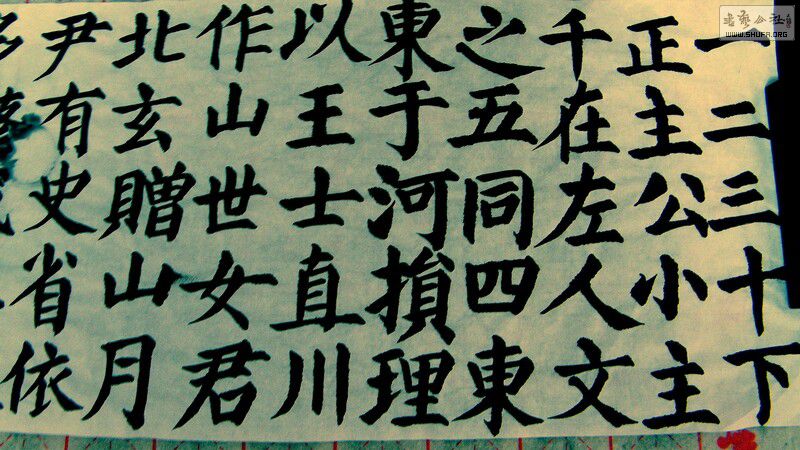 一二三十下
正主公小主
千在左人文
之五同四東
東于河損理
以王士直川
作山世女君
北玄贈山月
尹有史省依
書藝公社
WWW.SHUFA.ORG